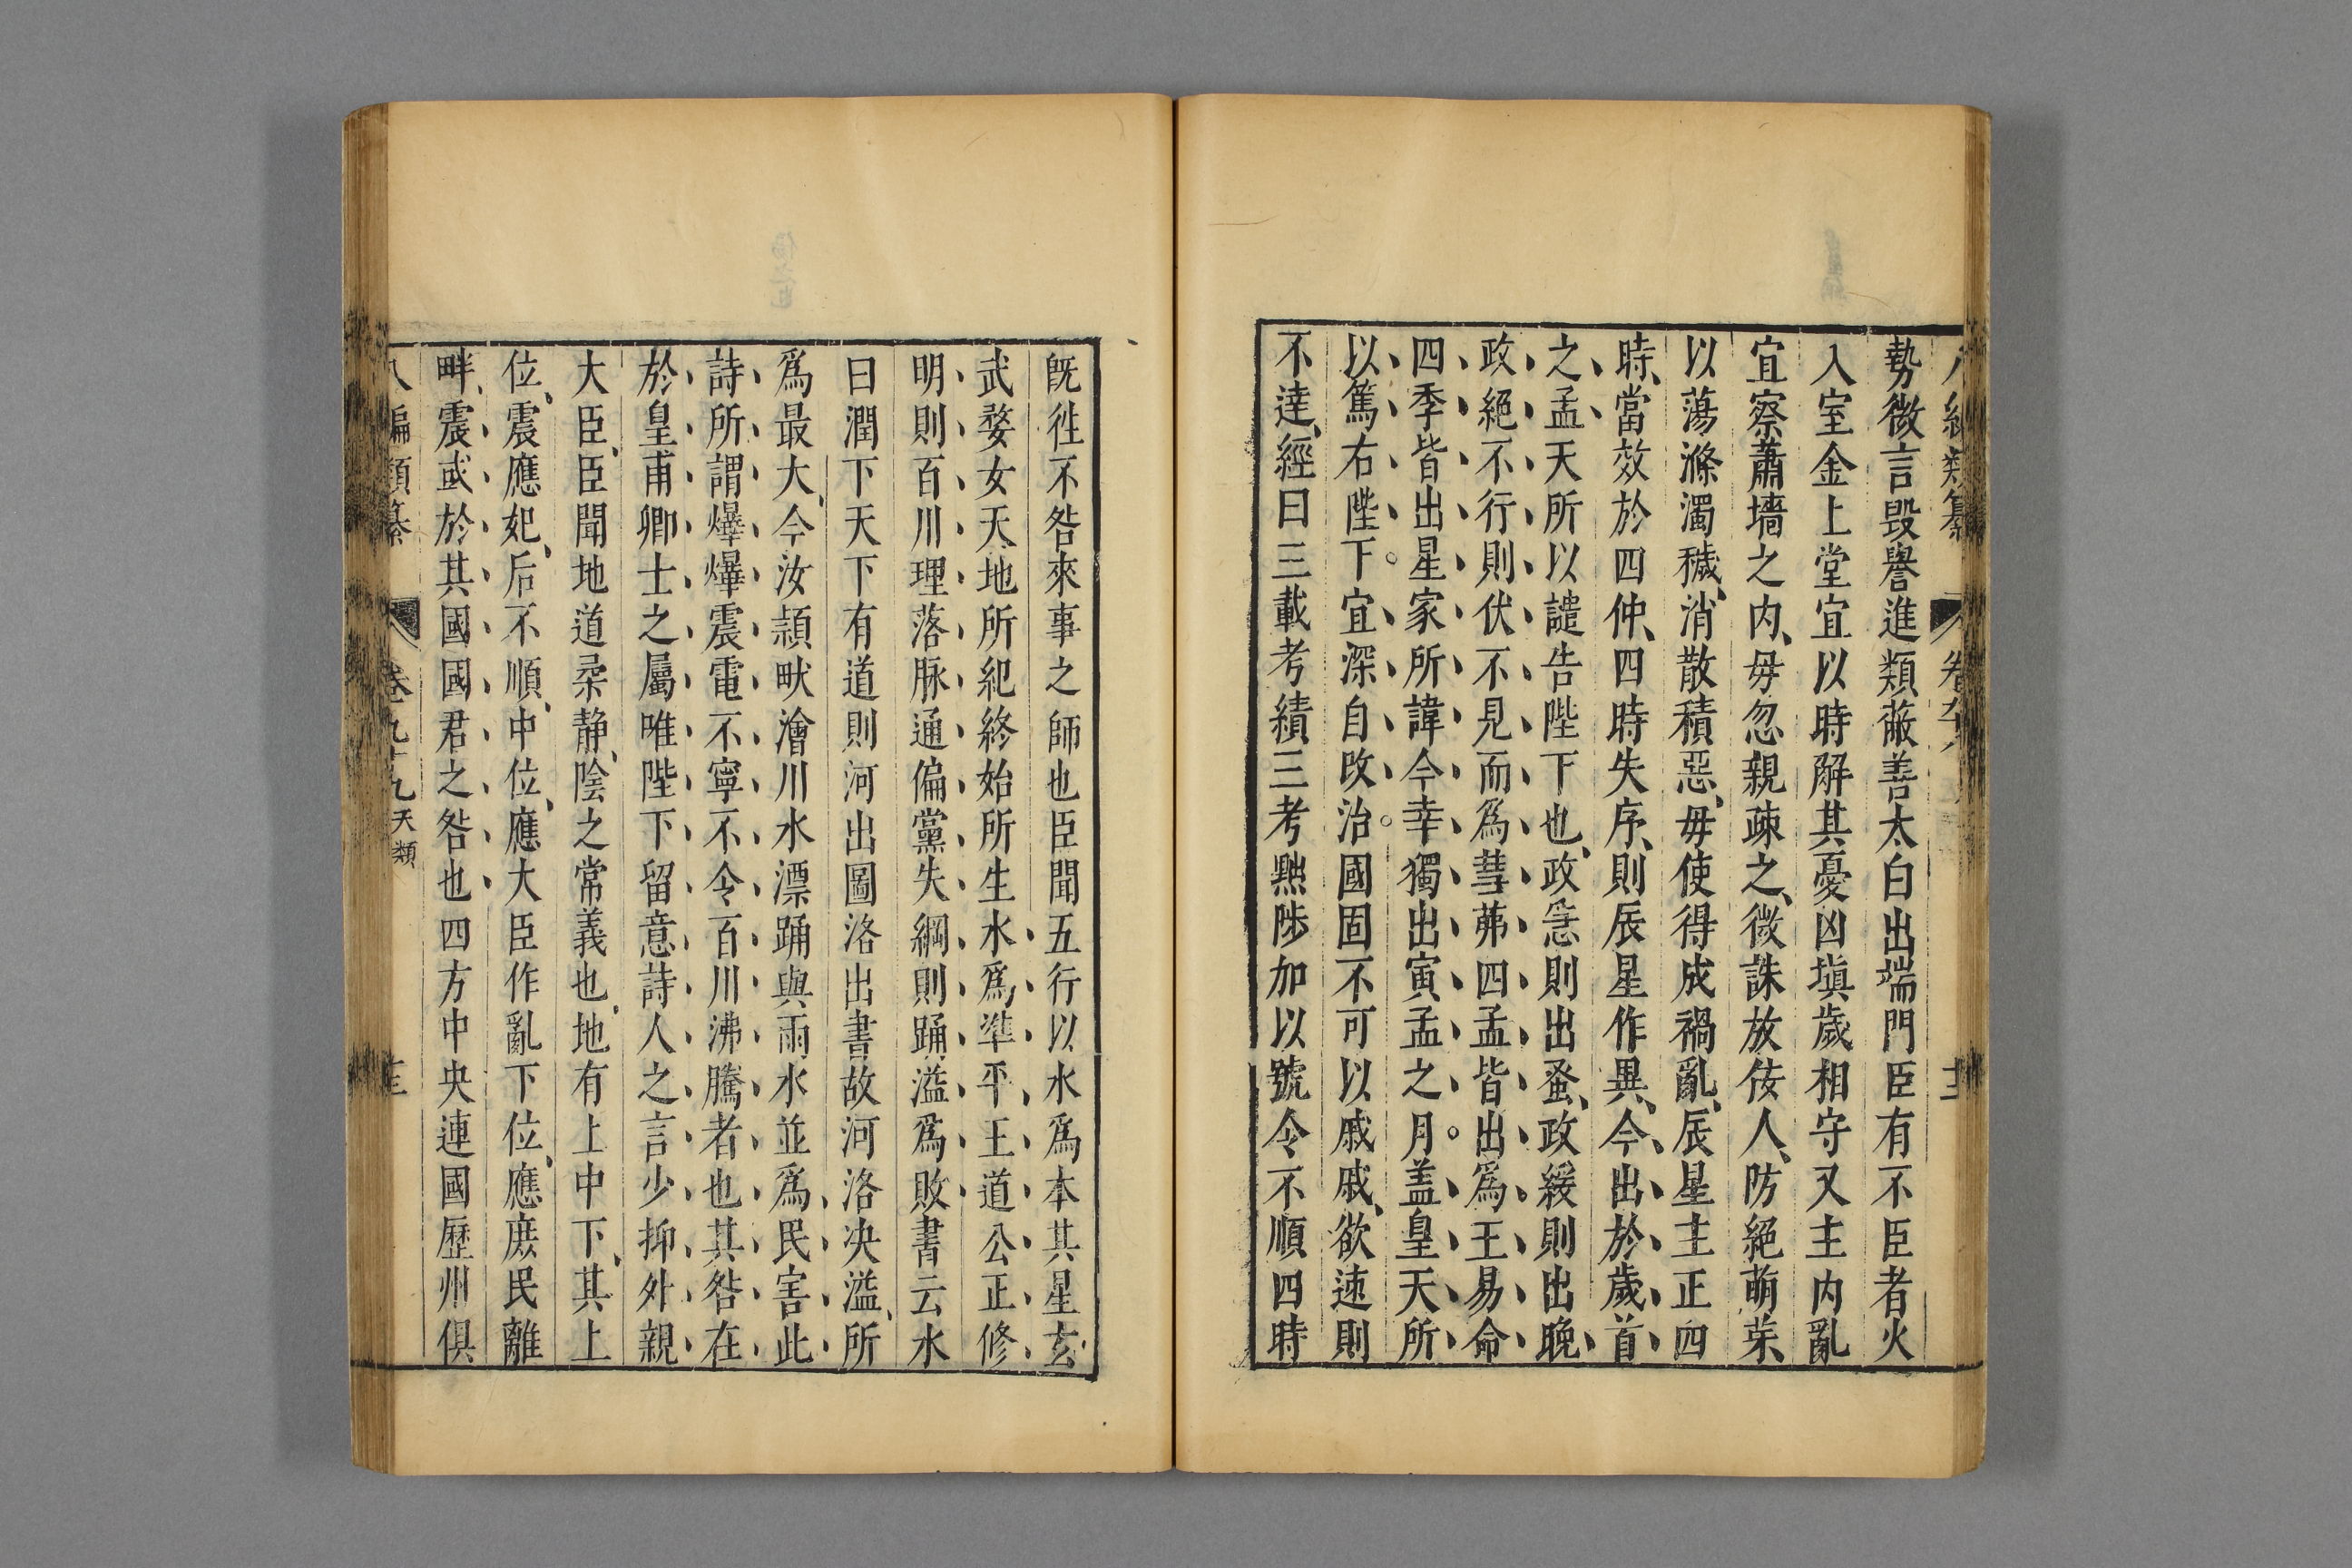 勢微言毀譽進類蔽善太白出端門臣有不臣者火
入室金上堂宜以時解其憂凶塡歲相守又主内亂
宜察蕭墻之内、毋忽親疎之、微誅放佞人、防絕萌芽、
以蕩滌濁穢、消散積惡、毋使得成禍亂、辰星主正四
時、當效於四仲、四時失序、則辰星作異、今出於歲首
之孟天所以譴告陛下也、政急則出蚤、政緩則出晚
政絕不行則伏不見而爲彗茀四孟皆出爲王易命
四季皆出星家所諱今幸獨出寅孟之月。盖皇天所
以篤右陛下。宜深自改治。國固不可以戚戚、欲速則
不達、經曰三載考績三考黜陟加以號令不順四時
既徃不咎來事之師也臣聞五行以水爲本其星玄
武婺女天地所紀終始所生水爲準平王道公正修
明則百川理落脉通偏黨失綱則踊溢爲敗書云水
曰潤下天下有道則河出圖洛出書故河洛决溢、所
爲最大、今汝潁畎澮川水漂踊與雨水並爲民害此
詩所謂爗爗震電不寧不令百川沸騰者也其咎在
於皇甫卿士之屬唯陛下留意詩人之言少抑外親
大臣、臣聞地道柔静、陰之常義也、地有上中下、其上
位、震應妃、后不順、中位、應大臣作亂下位、應庶民離
畔、震或於其國國君之咎也四方中央連國歷州俱
八編類纂 卷九十九天類